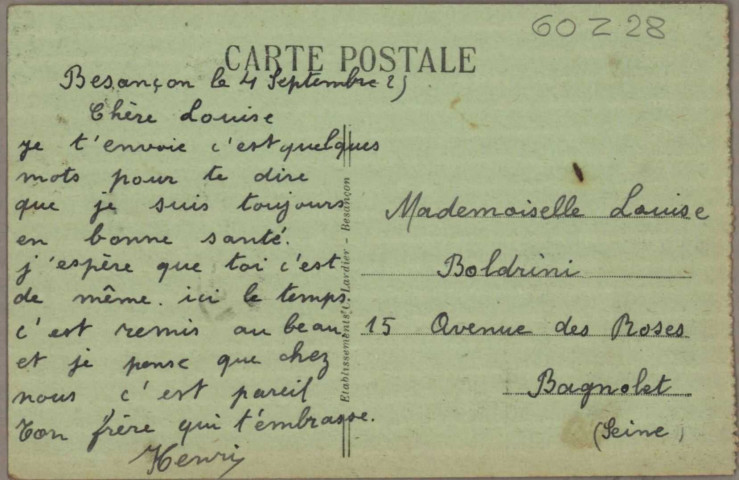 60 Z 28
CARTE POSTALE
Besançon le 4 Septembre 25
Chère Louise
je t'envoie c'est quelques
mots pour te dire
que je suis toujours
en bonne santé.
j'espère que toi c'est
de même. ici le temps
c'est remis au beau
et je pense que chez
nous c'est pareil
Ton frère qui t'embrasse.
Henri
Etablissements C. Lardier - Besançon
Mademoiselle Louise
Boldrini
15 Avenue des Roses
Bagnolet
(Seine)